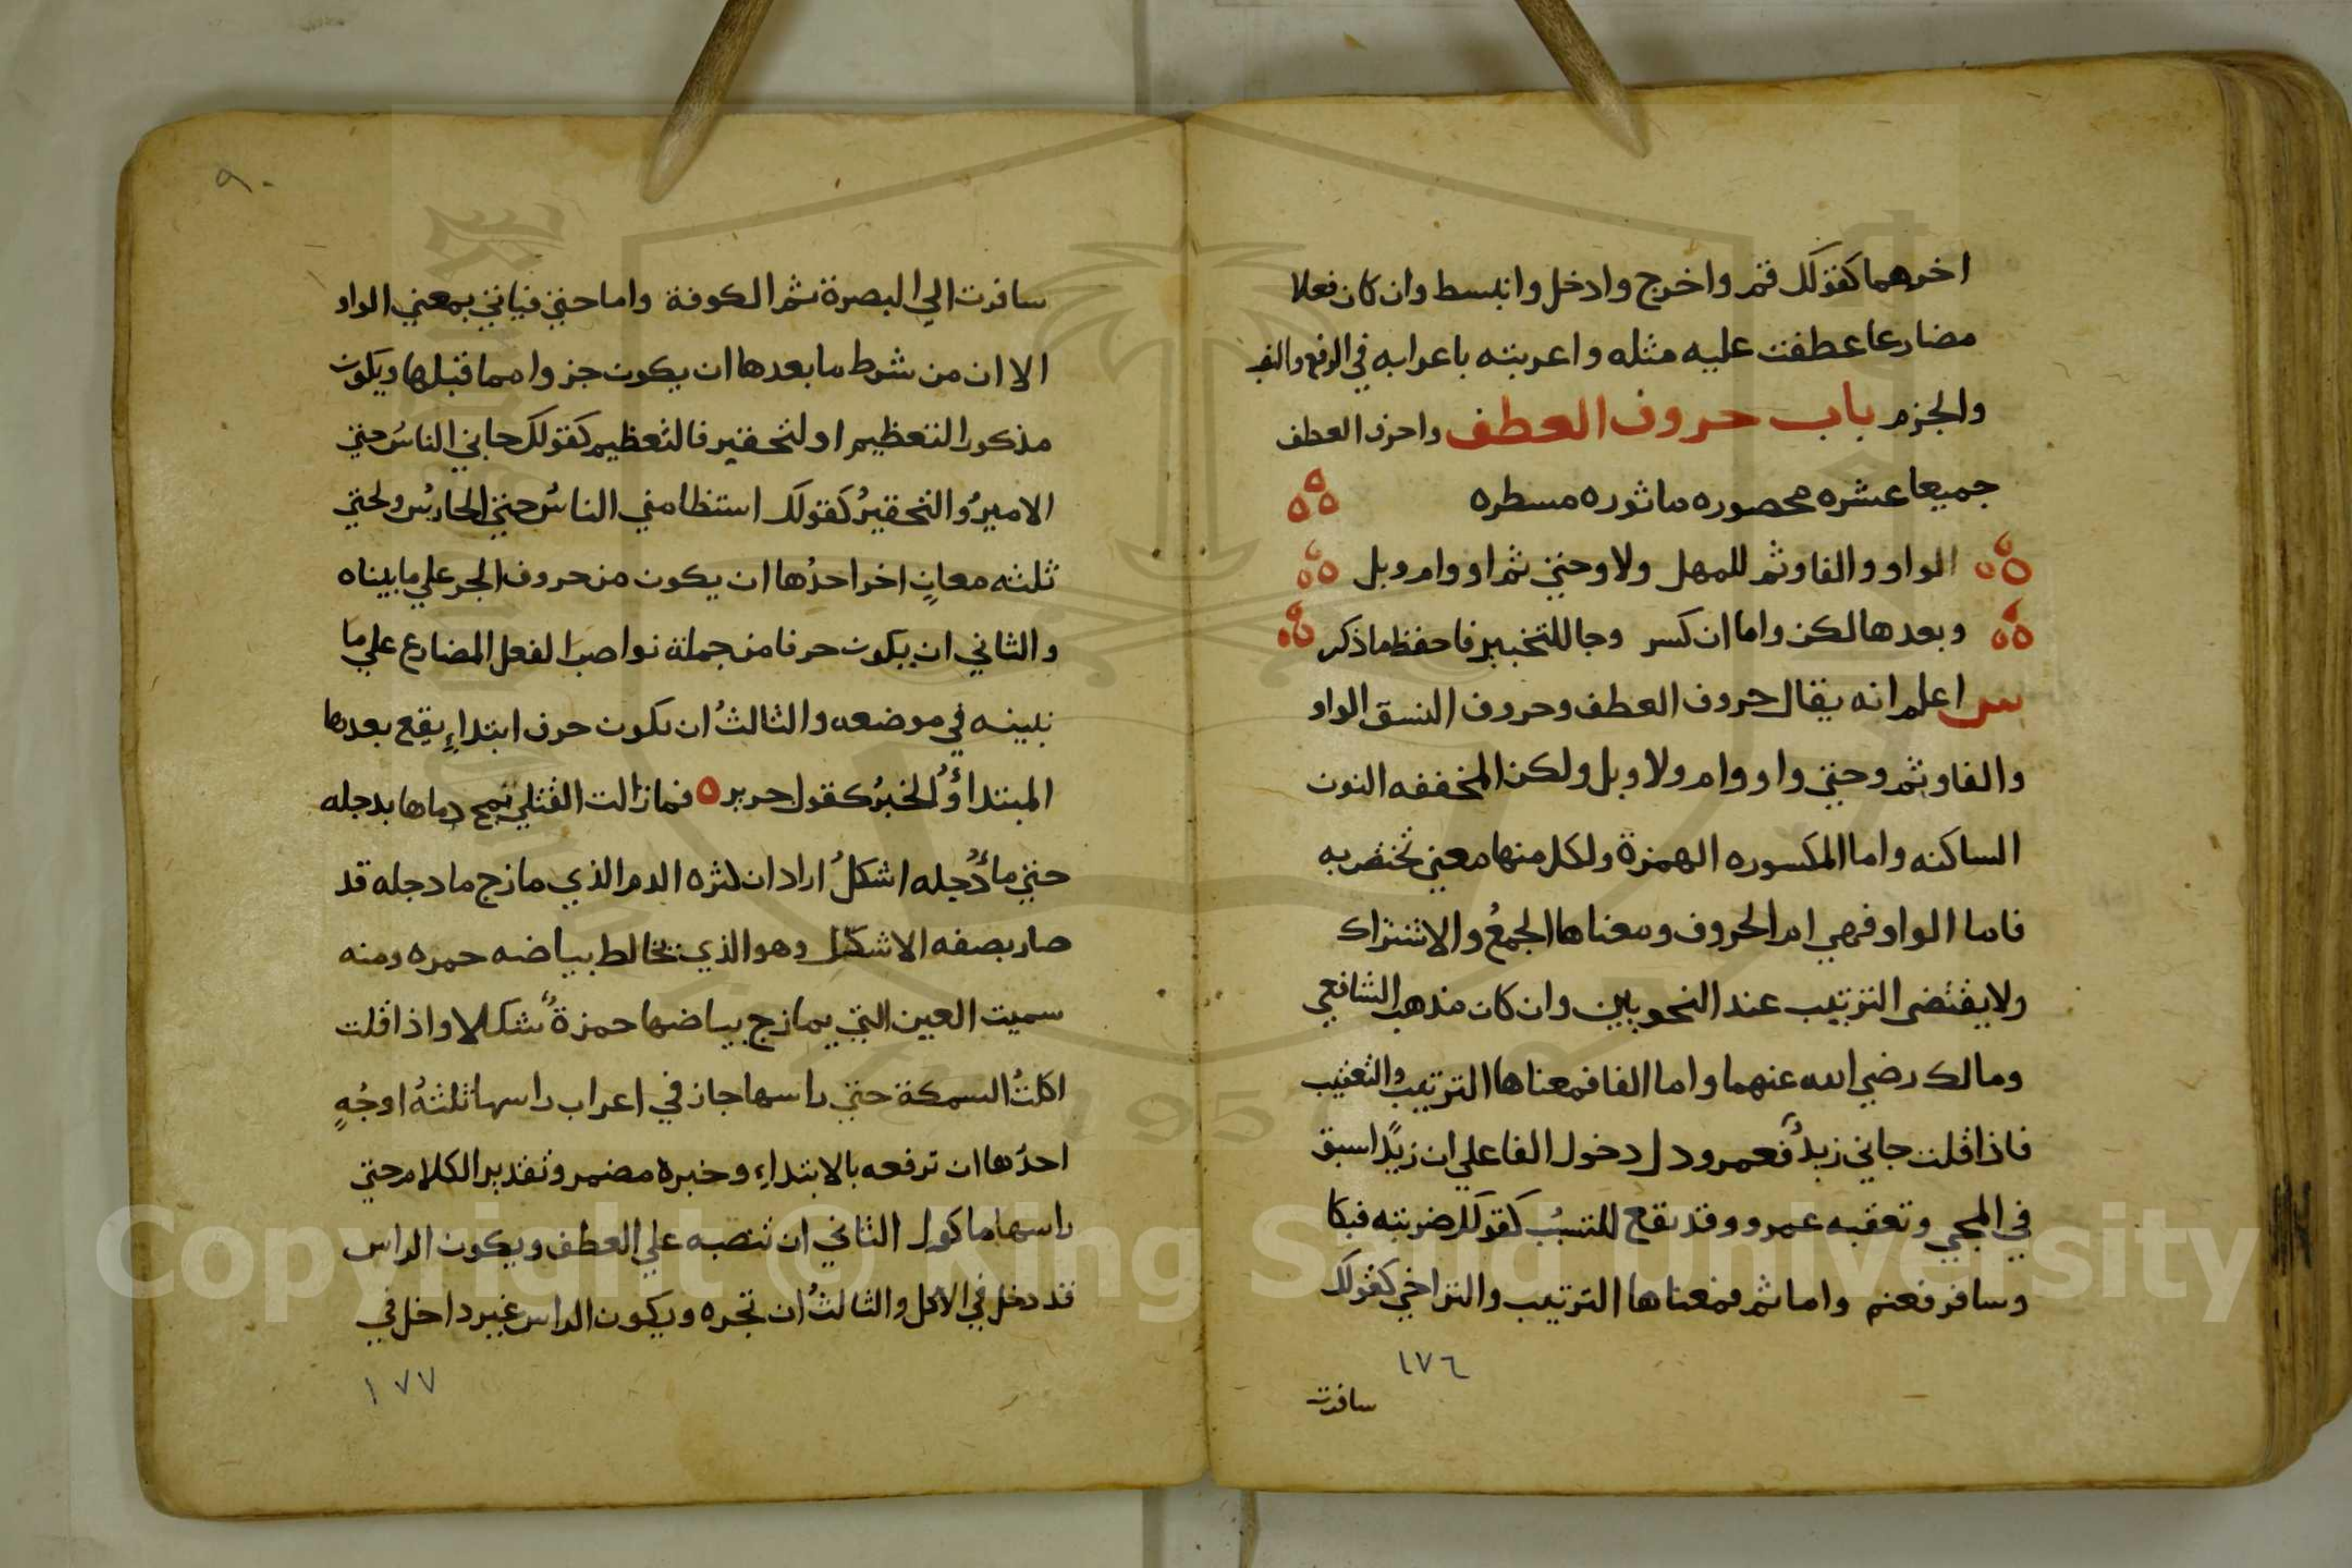 اخرهما كقولك قم واخرج وادخل وانبسط وان كان فعلا
مضارعا عطفت عليه مثله واعربته باعرابه في الرفع والنصب
والجزم باب حروف العطف واحرف العطف
جميعا عشره محصوره ماثوره مسطره
الواو والفا وثم للمهل ولا وحتي ثم او وام وبل
وبعدها لكن واما ان كسر وجا للتخيير فاحفظ ما ذكر
س اعلم انه يقال حروف العطف وحروف النسق الواو
والفا وثم وحتي واو وام ولا وبل ولكن المخففه النون
الساكنه واما المكسوره الهمزة ولكل منها معني تختص به
فاما الواو فهي ام الحروف ومعناها الجمعُ والاشتراك
ولا يقتضى الترتيب عند النحويين وان كان مذهب الشافعي
ومالك رضي الله عنهما واما الفا فمعناها الترتيب والتعقيب
فاذا قلت جاني زيدٌ فعمرو دل دخول الفا علي ان زيدًا سبق
في المجي وتعقبه عمرو وقد تقع للتسبُب كقولك ضربته فبكا
وسافر فغنم واما ثم فمعناها الترتيب والتراخي كقولك
١٧٦
سافرت
٩٠
سافرت الي البصرة ثم الكوفة واما حتي فياتي بمعني الواو
الا ان من شرط ما بعدها ان يكون جزوا مما قبلها ويكون
مذكورا لتعظيم او لتحقير فالتعظيم كقولك جاني الناسُ حتي
الاميرُ والتحقيرُ كقولك استنظا مني الناسُ حتي الحارسُ ولحتي
ثلثه معانٍ اخر احدُها ان يكون من حروف الجر علي ما بيناه
والثاني ان يكون حرفا من جملة نواصب الفعل المضارع علي ما
نبينه في موضعه والثالثُ ان يكون حرف ابتداءٍ يقع بعدها
المبتداؤُ والخبرُ كقول جرير ه فما زالت القتلي تمج دماها بدجله
حتي ماءُ دجله اشكلُ اراد ان لكثره الدم الذي مازج ما دجله قد
صار بصفه الاشكل وهو الذي يخالط بياضه حمره ومنه
سميت العين التي يمازج بياضها حمرةٌ شكلا واذا قلت
اكلتُ السمكة حتي راسها جاز في اعراب راسها ثلثةُ اوجُهٍ
احدُها ان ترفعه بالابتداءِ وخبره مضمر وتقدير الكلام حتي
راسها ماكول الثاني ان تنصبه علي العطف ويكون الراس
قد دخل في الاكل والثالثُ ان تجره ويكون الراس غير داخل في
١٧٧
Copyright © King Saud University
1957